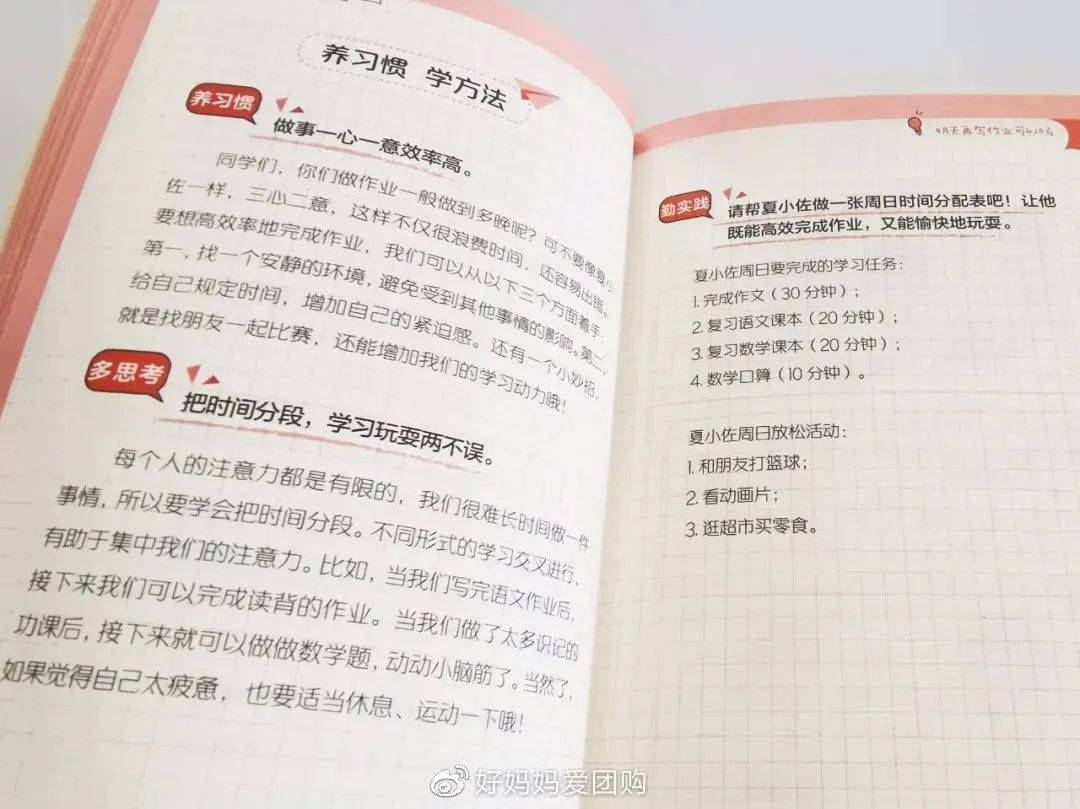 养习惯 学方法
养习惯
做事一心一意效率高。
同学们，你们做作业一般做到多晚呢？可不要像夏小
佐一样，三心二意，这样不仅很浪费时间，还容易出错。
要想高效率地完成作业，我们可以从以下三个方面着手：
第一，找一个安静的环境，避免受到其他事情的影响。第二，
给自己规定时间，增加自己的紧迫感。还有一个小妙招，
就是找朋友一起比赛，还能增加我们的学习动力哦！
多思考
把时间分段，学习玩耍两不误。
每个人的注意力都是有限的，我们很难长时间做一件
事情，所以要学会把时间分段。不同形式的学习交叉进行，
有助于集中我们的注意力。比如，当我们写完语文作业后，
接下来我们可以完成读背的作业。当我们做了太多识记的
功课后，接下来就可以做做数学题，动动小脑筋了。当然了，
如果觉得自己太疲惫，也要适当休息、运动一下哦！
明天再写作业可以吗
勤实践
请帮夏小佐做一张周日时间分配表吧！让他
既能高效完成作业，又能愉快地玩耍。
夏小佐周日要完成的学习任务：
1. 完成作文（30 分钟）；
2. 复习语文课本（20 分钟）；
3. 复习数学课本（20 分钟）；
4. 数学口算（10 分钟）。
夏小佐周日放松活动：
1. 和朋友打篮球；
2. 看动画片；
3. 逛超市买零食。
好妈妈爱团购